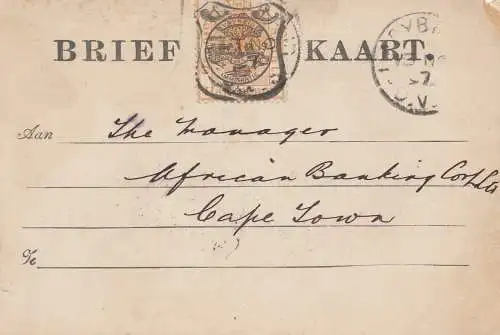 BRIEF KAART.
Aan The Manager
African Banking Corp Ltd
Cape Town
Te